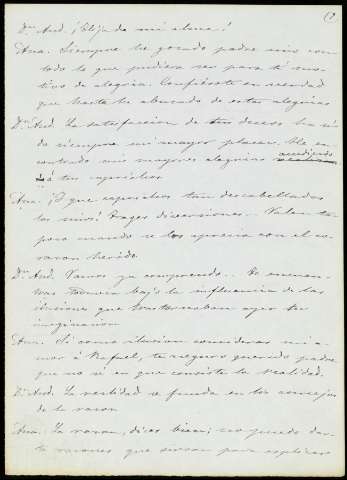 (2)
Dn. And. ¡Hija de mi alma!
Ana. Siempre he gozado padre mio con
todo lo que pudiera ser para tí mo-
tivo de alegria. Confiésote en verdad
que hasta he abusado de estas alegrias
Dn. And. La satisfaccion de tus deseos ha si
do siempre mi mayor placer. He en-
contrado mis mayores alegrias accediendo
á tus caprichos
Ana. ¡Y que caprichos tan descabellados
los mios! Pagas diversiones.. Valen tan
poco cuando se los aprecia con el co-
razon herido
Dn. And. Vamos ya comprendo.. Te encuen-
tras todavia bajo la influencia de las
ilusiones que trastornaban ayer tu
imaginacion
Ana. Si como ilusion consideras mi a-
mor á Rafael, te aseguro querido padre
que no sé en que consiste la realidad.
Dn. And. La realidad se funda en los consejos
de la razon
Ana. La razon, dices bien; no puedo dar-
te razones que sirvan para esplicar